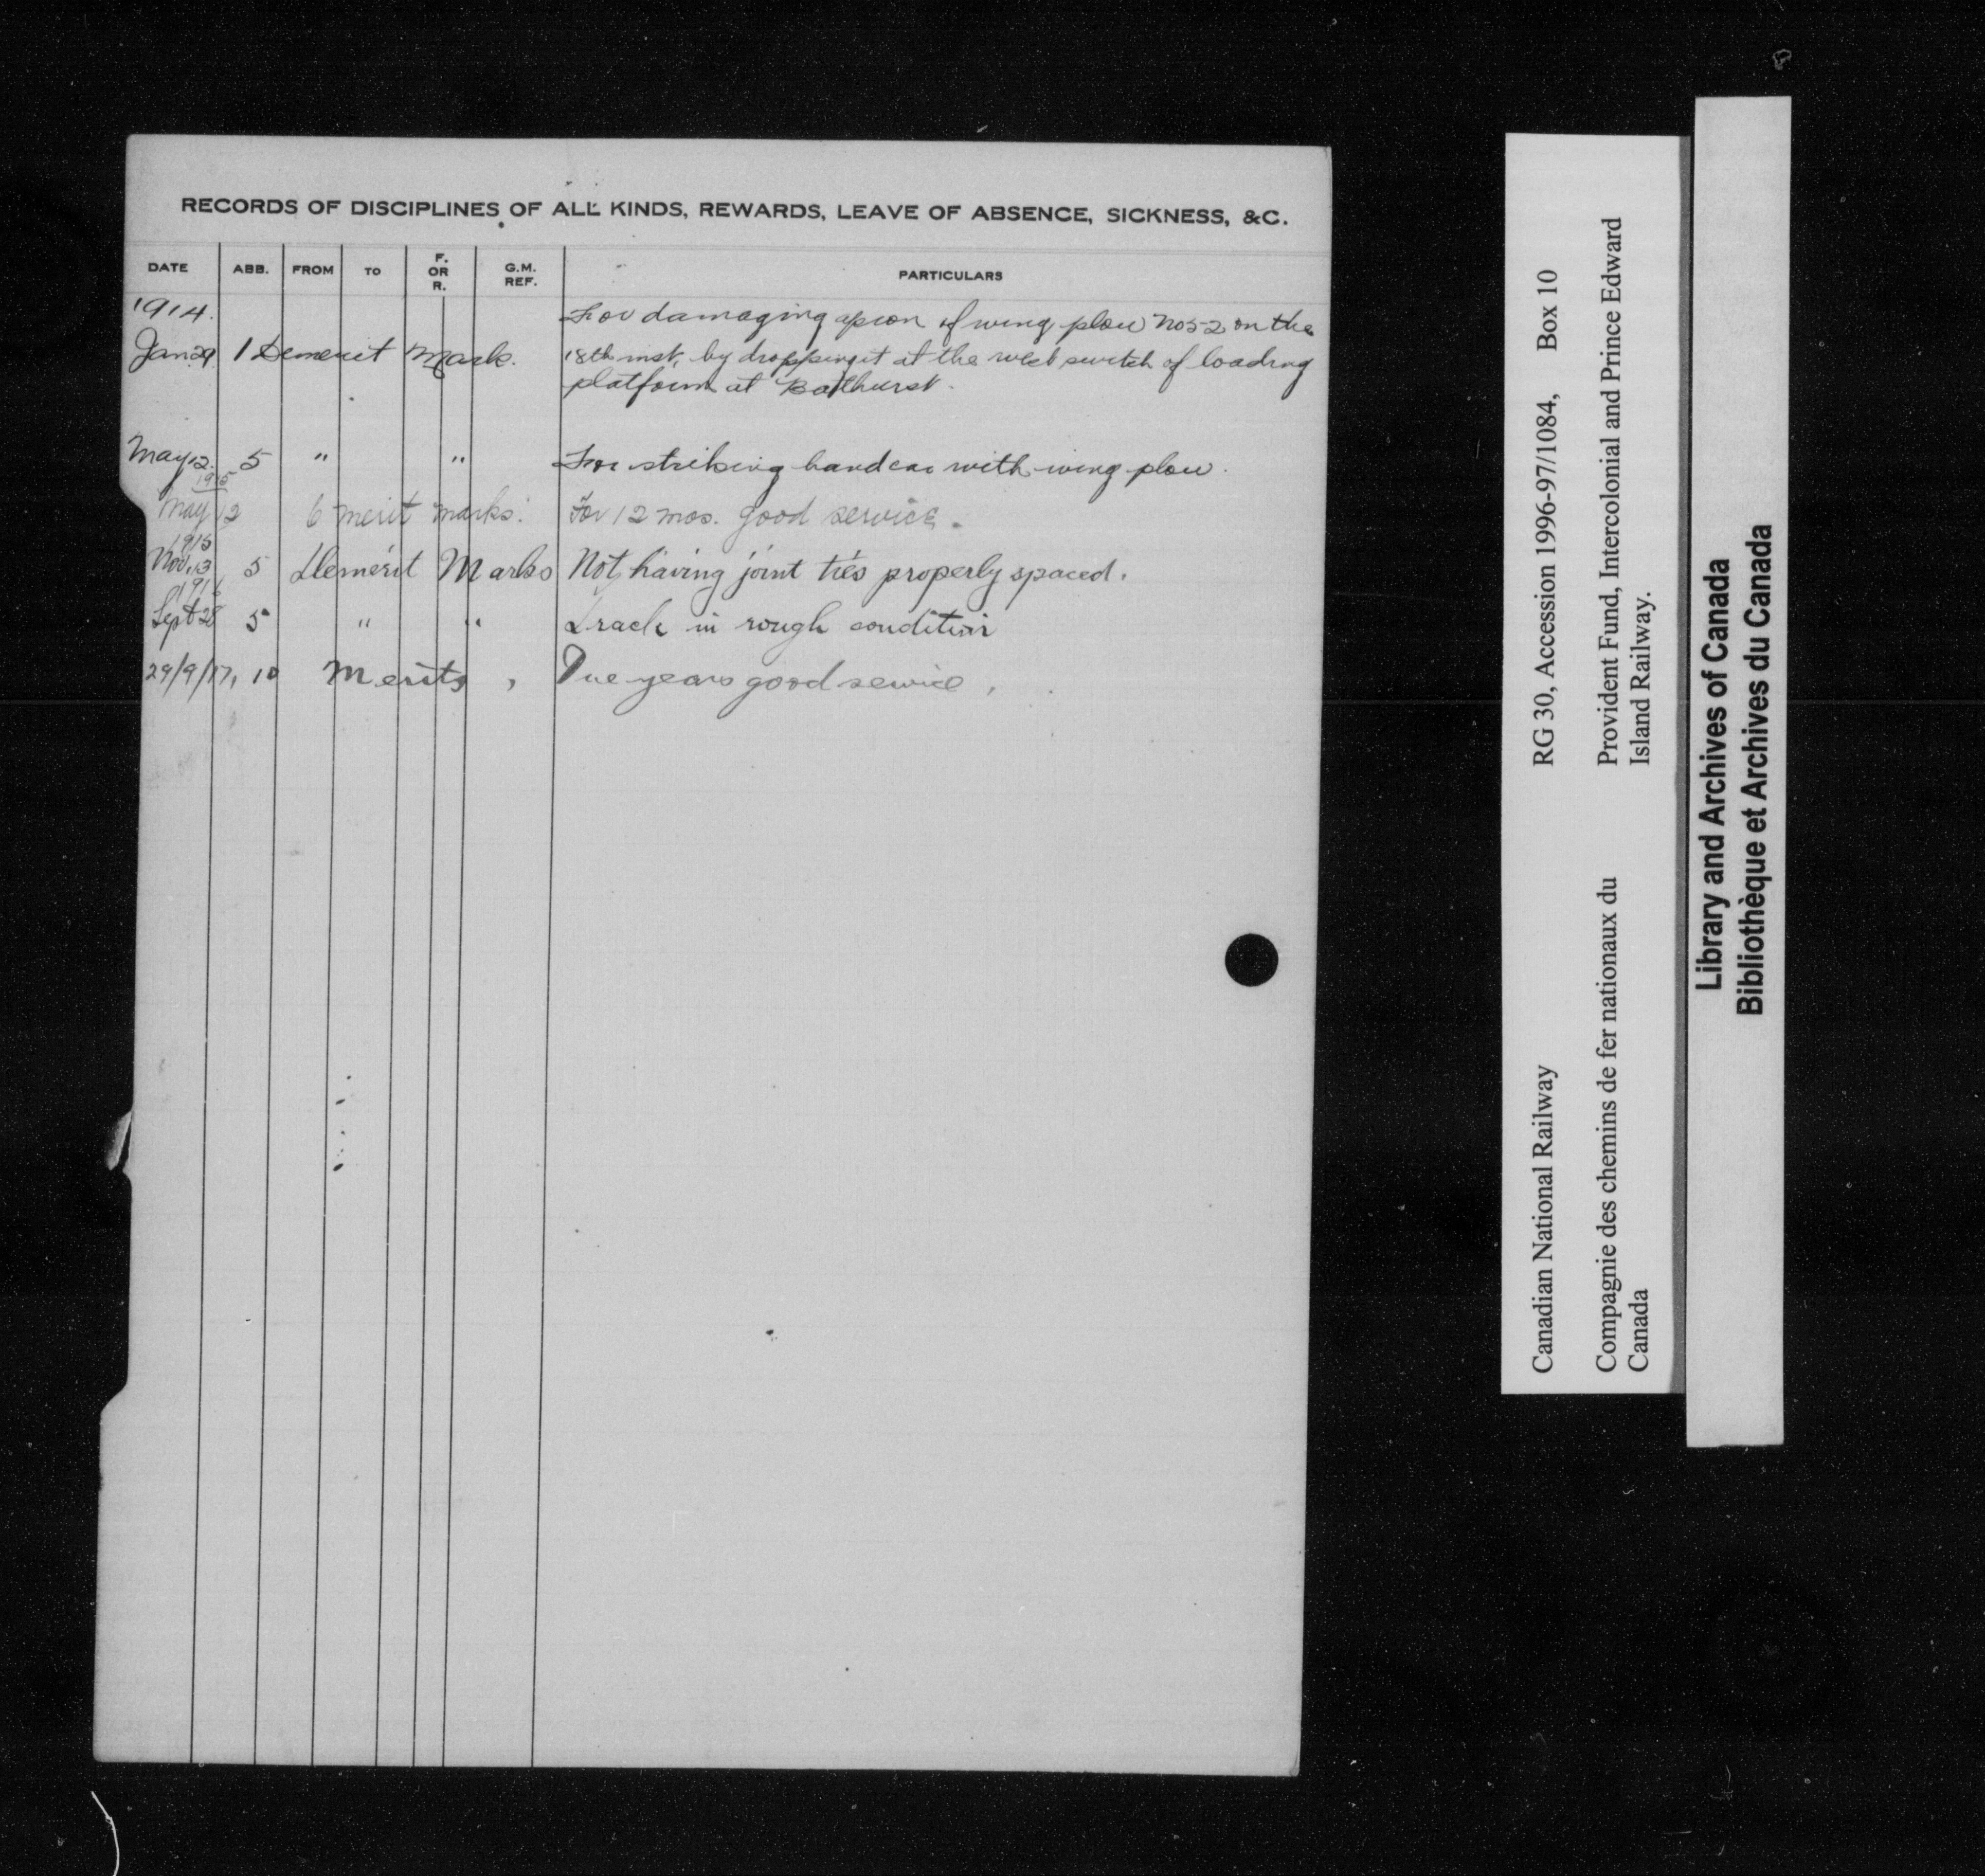 RECORDS OF DISCIPLINES OF ALL KINDS, REWARDS, LEAVE OF ABSENCE, SICKNESS, &C.
DATE ABB. FROM TO F. OR R. G.M. REF. PARTICULARS
1914. For damaging apron of wing plow No 52 on the
Jan 29. 1 Demerit Mark. 18th inst, by dropping it at the west switch of loading
platform at Bathurst.
May 12. 5 " " For striking hand car with wing plow.
1915
May 12 6 merit marks. For 12 mos. good service.
1915
Nov. 13 5 Demerit Marks Not having joint ties properly spaced.
1916
Sept 28 5 " " Track in rough condition
29/9/17, 10 Merits, One years good service,
Canadian National Railway RG 30, Accession 1996-97/1084, Box 10
Compagnie des chemins de fer nationaux du Provident Fund, Intercolonial and Prince Edward
Canada Island Railway.
Library and Archives of Canada
Bibliothèque et Archives du Canada